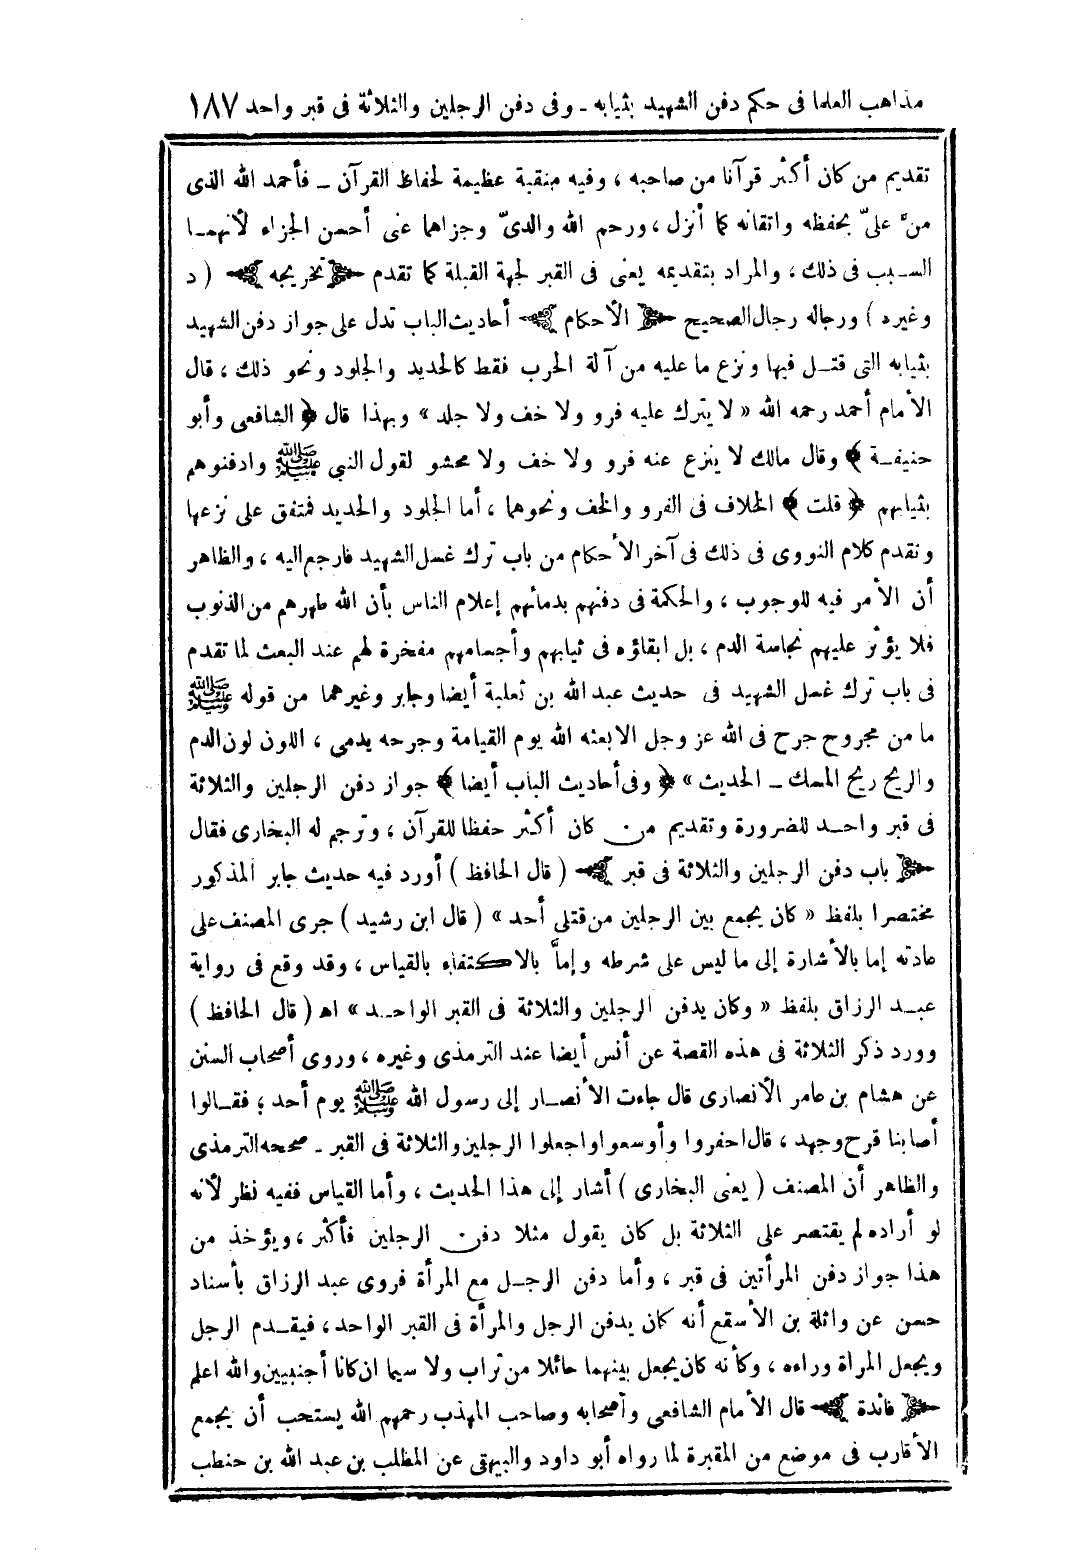 مذاهب العلما فى حكم دفن الشهيد بثيابه ـ وفى دفن الرجلين والثلاثة فى قبر واحد ١٨٧
تقديم من كان أكثر قرآنا من صاحبه ، وفيه منقبة عظيمة لحفاظ القرآن ـ فأحمد الله الذى
منَّ علىّ بحفظه واتقانه كما أنزل ، ورحم الله والدىّ وجزاهما عنى أحسن الجزاء لأنهما
السبب فى ذلك ، والمراد بتقديمه يعنى فى القبر لجهة القبلة كما تقدم ﴿ تخريجه ﴾ ( د
وغيره ) ورجاله رجال الصحيح ﴿ الأحكام ﴾ أحاديث الباب تدل على جواز دفن الشهيد
بثيابه التى قتل فيها ونزع ما عليه من آلة الحرب فقط كالحديد والجلود ونحو ذلك ، قال
الأمام أحمد رحمه الله « لا يترك عليه فرو ولا خف ولا جلد » وبهذا قال ﴿ الشافعى وأبو
حنيفة ﴾ وقال مالك لا ينزع عنه فرو ولا خف ولا محشو لقول النبى ﷺ وادفنوهم
بثيابهم ﴿ قلت ﴾ الخلاف فى الفرو والخف ونحوهما ، أما الجلود والحديد فمتفق على نزعها
وتقدم كلام النووى فى ذلك فى آخر الأحكام من باب ترك غسل الشهيد فارجع اليه ، والظاهر
أن الأمر فيه للوجوب ، والحكمة فى دفنهم بدمائهم إعلام الناس بأن الله طهرهم من الذنوب
فلا يؤثر عليهم نجاسة الدم ، بل ابقاؤه فى ثيابهم وأجسامهم مفخرة لهم عند البعث لما تقدم
فى باب ترك غسل الشهيد فى حديث عبد الله بن ثعلبة أيضا وجابر وغيرهما من قوله ﷺ
ما من مجروح جرح فى الله عز وجل الا بعثه الله يوم القيامة وجرحه يدمى ، اللون لون الدم
والريح ريح المسك ـ الحديث » ﴿ وفى أحاديث الباب أيضا ﴾ جواز دفن الرجلين والثلاثة
فى قبر واحد للضرورة وتقديم من كان أكثر حفظا للقرآن ، وترجم له البخارى فقال
﴿ باب دفن الرجلين والثلاثة فى قبر ﴾ ( قال الحافظ ) أورد فيه حديث جابر المذكور
مختصرا بلفظ « كان يجمع بين الرجلين من قتلى أحد » ( قال ابن رشيد ) جرى المصنف على
عادته إما بالأشارة إلى ما ليس على شرطه وإمّا بالاكتفاء بالقياس ، وقد وقع فى رواية
عبد الرزاق بلفظ « وكان يدفن الرجلين والثلاثة فى القبر الواحد » اه ( قال الحافظ )
وورد ذكر الثلاثة فى هذه القصة عن أنس أيضا عند الترمذى وغيره ، وروى أصحاب السنن
عن هشام بن عامر الأنصارى قال جاءت الأنصار إلى رسول الله ﷺ يوم أحد ؛ فقالوا
أصابنا قرح وجهد ، قال احفروا وأوسعوا واجعلوا الرجلين والثلاثة فى القبر ـ صححه الترمذى
والظاهر أن المصنف ( يعنى البخارى ) أشار إلى هذا الحديث ، وأما القياس ففيه نظر لأنه
لو أراده لم يقتصر على الثلاثة بل كان يقول مثلا دفن الرجلين فأكثر ، ويؤخذ من
هذا جواز دفن المرأتين فى قبر ، وأما دفن الرجل مع المرأة فروى عبد الرزاق بأسناد
حسن عن واثلة بن الأسقع أنه كان يدفن الرجل والمرأة فى القبر الواحد ، فيقدم الرجل
ويجعل المرأة وراءه ، وكأنه كان يجعل بينهما حائلا من تراب ولا سيما ان كانا أجنبيين والله اعلم
﴿ فائدة ﴾ قال الأمام الشافعى وأصحابه وصاحب المهذب رحمهم الله يستحب أن يجمع
الأقارب فى موضع من المقبرة لما رواه أبو داود والبيهقى عن المطلب بن عبد الله بن حنطب